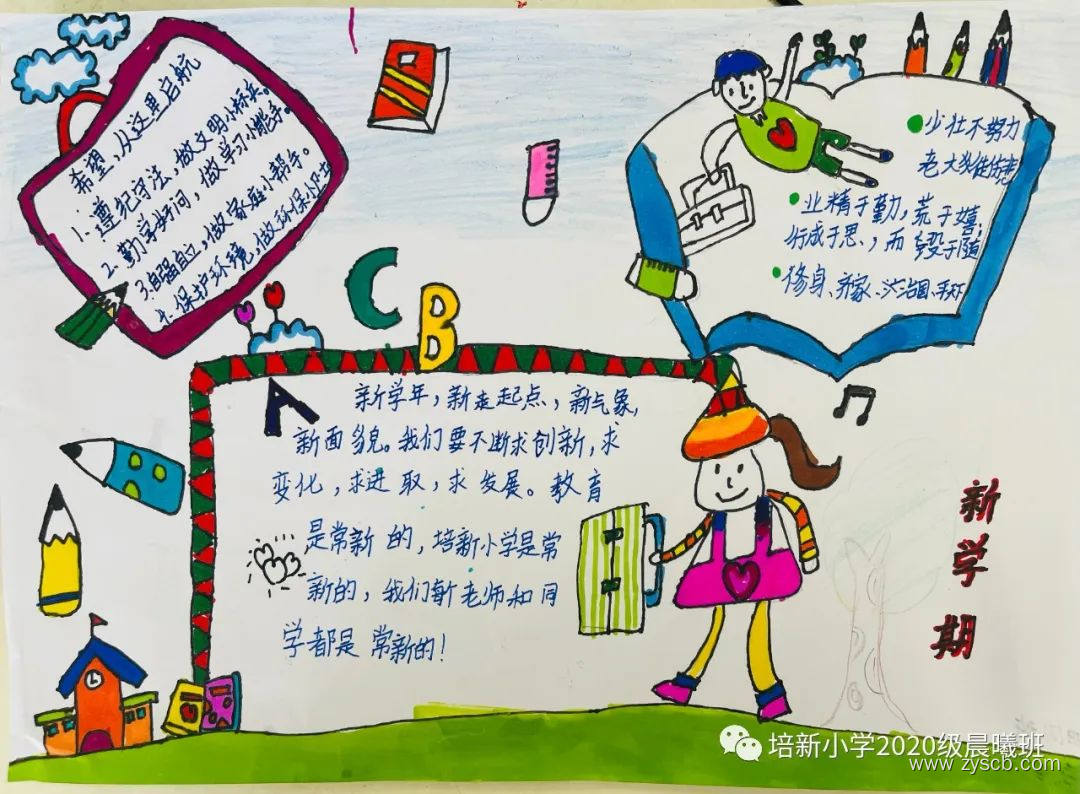 希望、从这里启航
1.遵纪守法,做文明小标兵。
2.勤学好问,做学习小能手。
3.自强自立,做家庭小帮手。
4.保护环境,做环保小卫士
少壮不努力
老大徒伤悲
业精于勤,荒于嬉;
行成于思,而毁于随
修身、齐家、治国、平天下
C
B
A
新学年,新起点,新气象,
新面貌。我们要不断求创新,求
变化,求进取,求发展。教育
是常新的,培新小学是常
新的,我们新老师和同
学都是常新的!
新学期
培新小学2020级晨曦班
www.zyscb.com